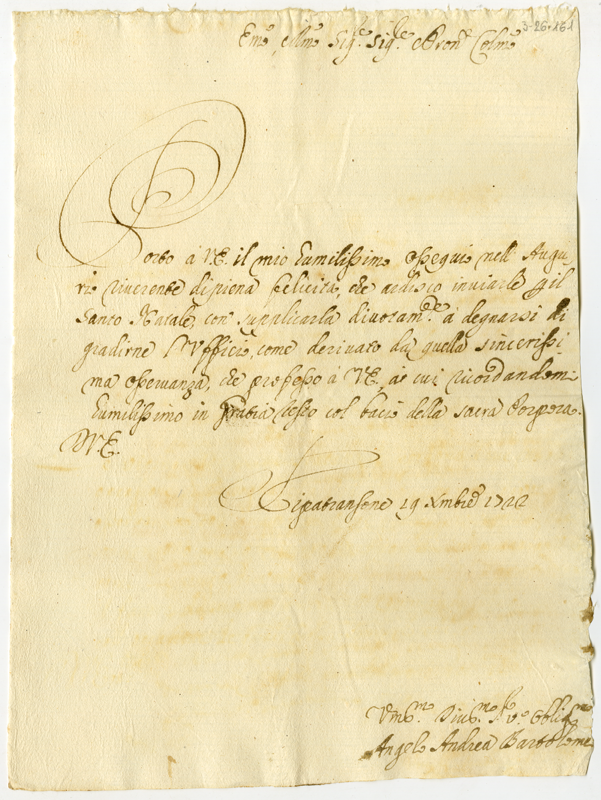 3-26-161
Em̃o, e Rm̃o Sig.re Sig.re e Pron̄ Colm̃o
Porto à V.E. il mio humilissimo ossequio nell'Augu
rio riverente di piena felicità, che ardisco inviarle p il
Santo Natale, con supplicarla divotam.te à degnarsi di
gradirne l'Ufficio, come derivato da quella sincerissi
ma osservanza, che professo à V.E., à cui ricordandomi
humilissimo in Grazia, resto col bacio della sacra Porpora.
D.V.E.
Ripatransone 19 Xmbre 1722
Vm̃o Div.mo Ser.e Oblig.mo
Angelo Andrea Bartolome